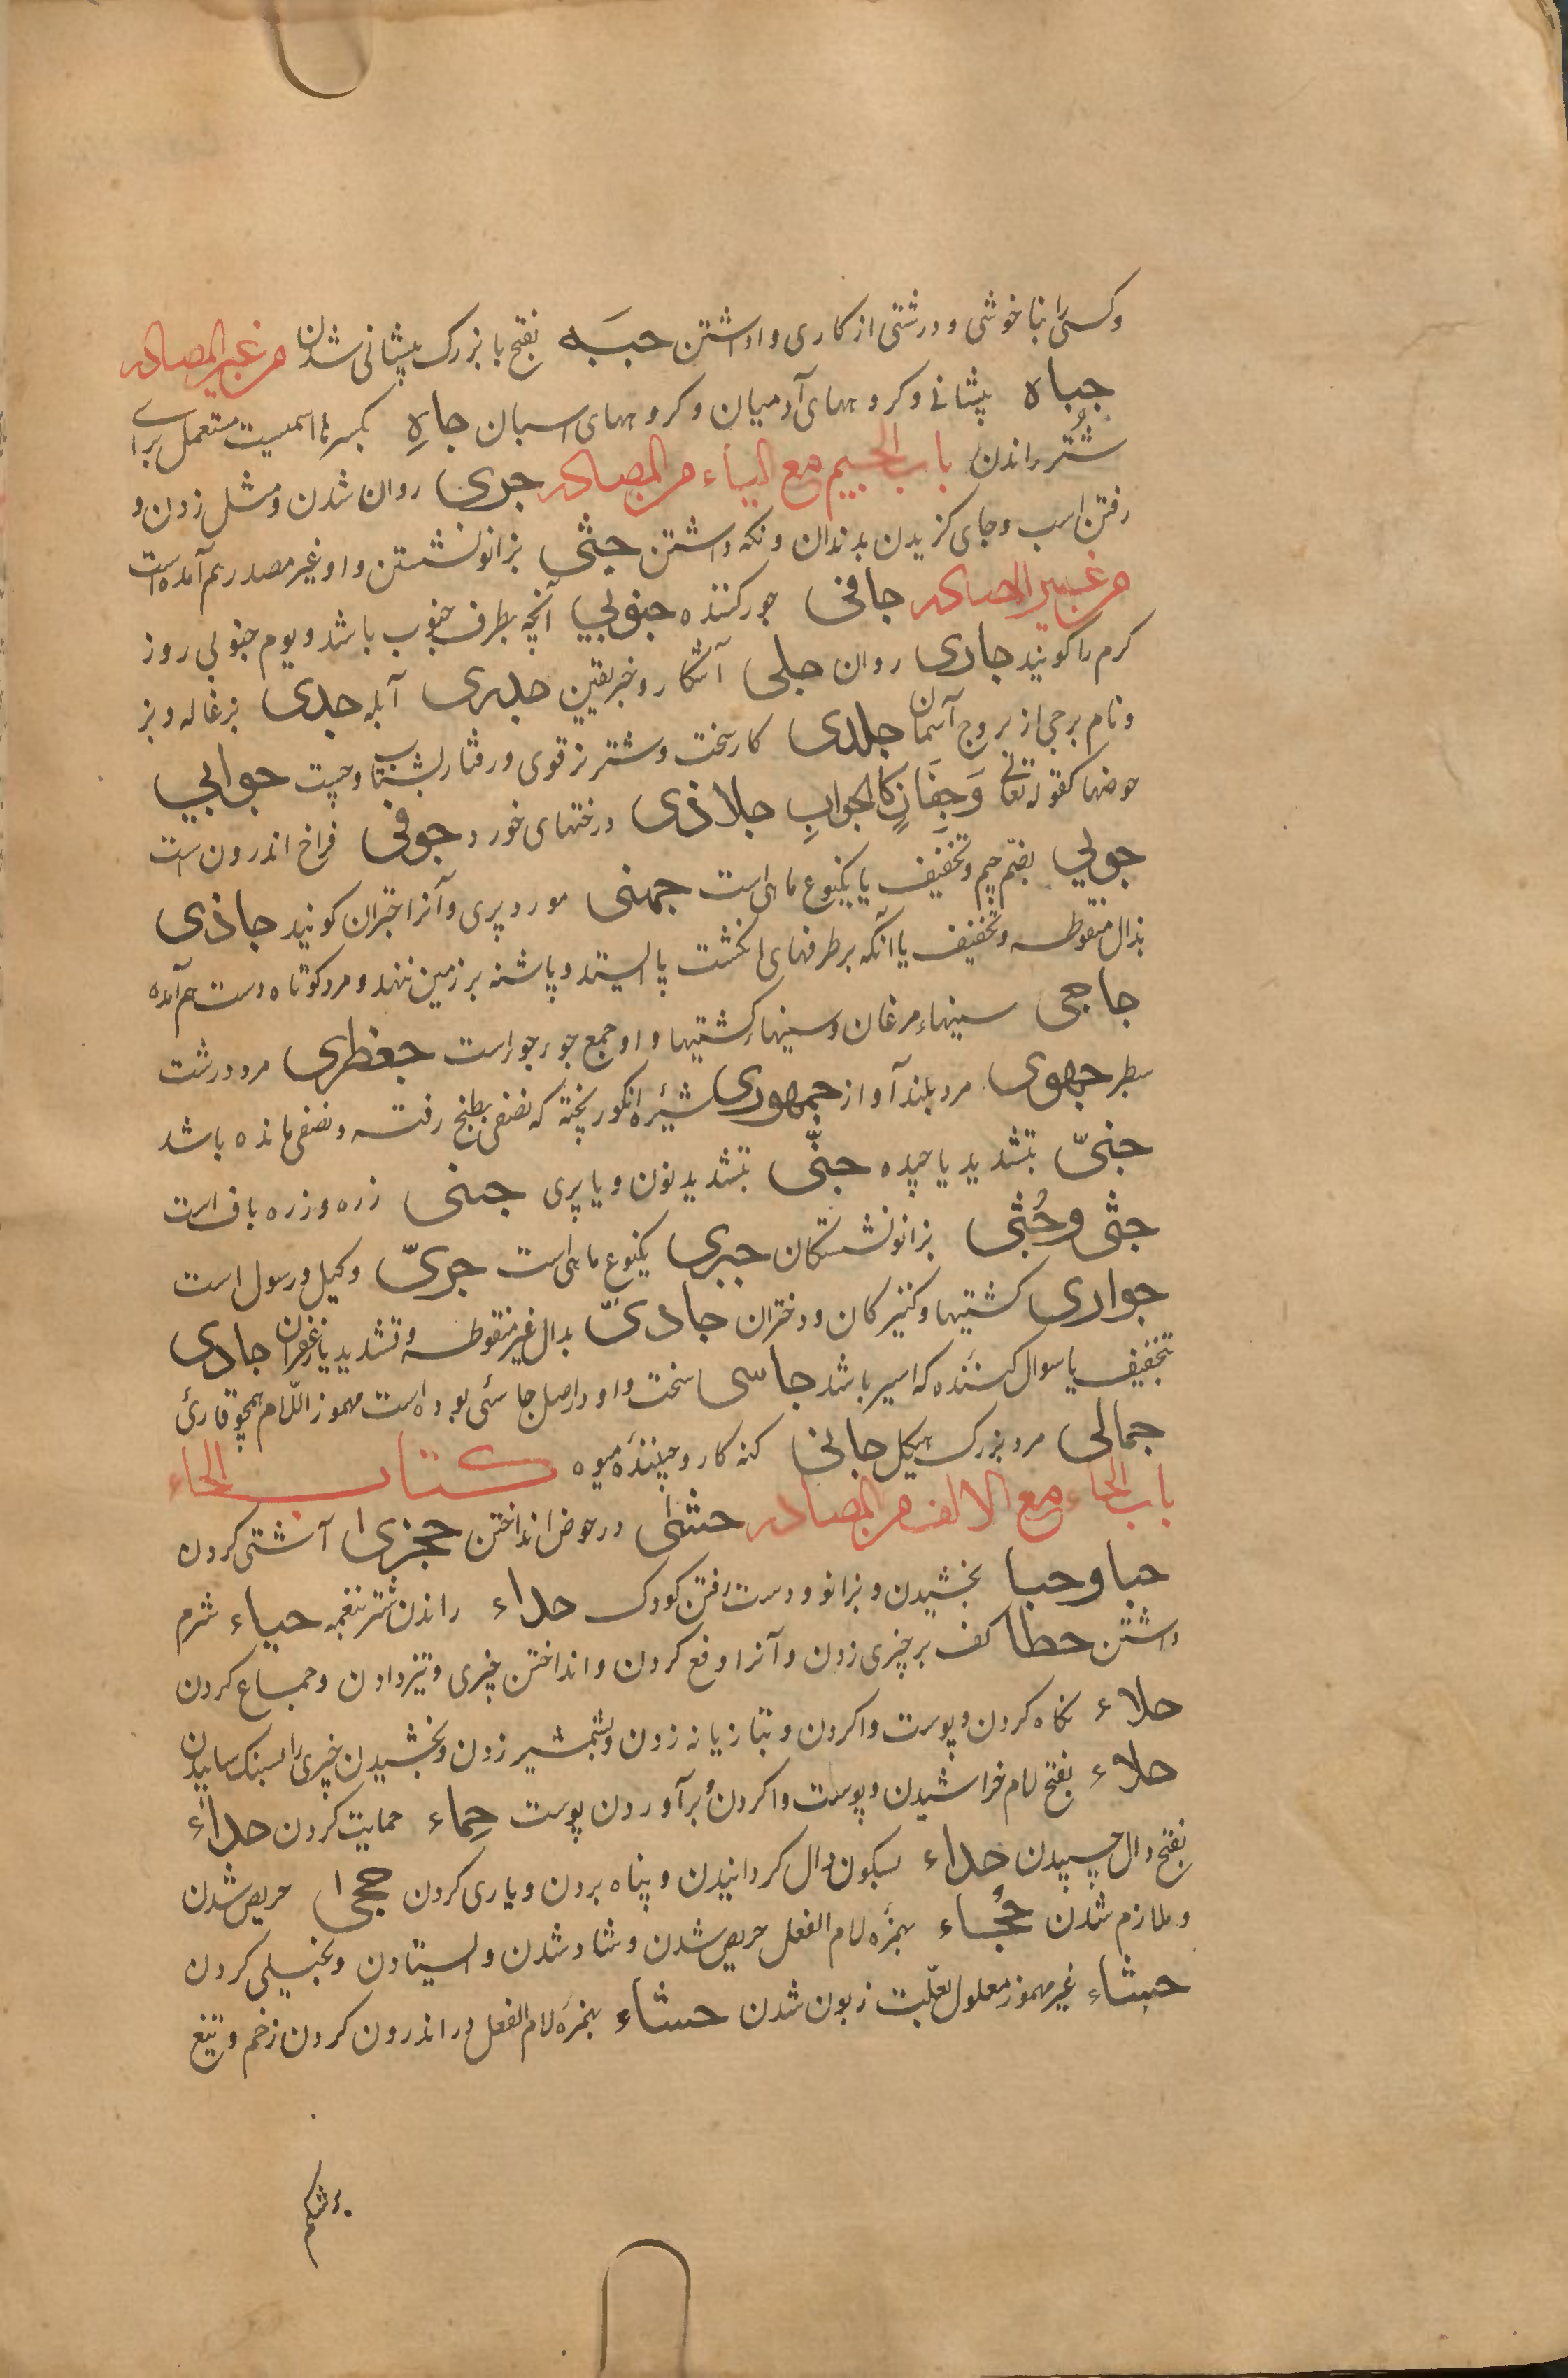 وکسی را بناخوشی و درشتی از کاری واداشتن جبَه بفتح با بزرک پیشانی شدن من غیر المصادر
جباه پیشانی و کروههای آدمیان و کروههای اسبان جاهِ بکسر ها اسمیست مستعمل برای
شُتُر راندن باب الجیم مع الیاء من المصادر جری روان شدن و مشل زدن و
رفتن اسب و جای کزیدن بدندان و نکه داشتن جثی بزانو نشستن و او غیر مصدر هم آمده است
من غیر المصادر جافی جور کننده جنوبی آنچه بطرف جنوب باشد و یوم جنوبی روز
کرم را کویند جاری روان جلی آشکار و خبر یقین جدری آبله جدی بزغاله و بز
و نام برجی از بروج آسمان جلدی کار سخت و شتر نر قوی و رفتار بشتاب و چست جوابی
حوضها کقوله تعالی وَجِفَانٍ کالجوابِ جلاذی درختهای خورد جوفی فراخ اندرون است
جوبی بضم جیم و تخفیف یا یکنوع ماهی است جهنی مورد پری و آنرا خبران کویند جاذی
بذال منقوطه و تخفیف یا آنکه بر طرفهای انکشت پا ایستد و پاشنه بر زمین ننهد و مرد کوتاه دست هم آمده
جاجی سینهاء مرغان و سینهاء کشتیها و او جمع جوءجوء است جعظری مرد درشت
سطبر جهوی مرد بلند آواز جمهوری شیرهٔ انکور پخته که نصفی بطبخ رفته و نصفی مانده باشد
جنیّ بتشدید یا چیده جنّی بتشدید نون و یا پری جنی زره و زره باف است
جثی و جُثی بزانو نشستکان جبری یکنوع ماهی است جریّ وکیل و رسول است
جواری کشتیها و کنیزکان و دختران جادیّ بدال غیر منقوطه و تشدید یا زعفران جادی
بتخفیف یا سوال کننده که اسیر باشد جاسی سخت و او در اصل جاسئی بوده است مهموز اللّام همچو قارئ
جمالی مرد بزرک هیکل جانی کنه کار و چینندهٔ میوه کتاب الحاء
باب الحاء مع الالف من المصادر حشا در حوض انداختن حجزی آشتی کردن
حبا و حبا بخشیدن و بزانو و دست رفتن کودک حداء راندن شتر بنغمه حیاء شرم
داشتن حطا کف بر چیزی زدن و آنرا دفع کردن و انداختن چیزی و تیز دادن و جماع کردن
حلاء نکاه کردن و پوست وا کردن و بتازیانه زدن و بشمشیر زدن و بخشیدن چیزی را بسنک ساییدن
حلاء بفتح لام خراشیدن و پوست وا کردن و برآوردن پوست حِماء حمایت کردن حداء
بفتح دال چسپیدن حداء بسکون دال کردانیدن و پناه بردن و یاری کردن حجی حریص شدن
و ملازم شدن حُجاء بهمزهٔ لام الفعل حریص شدن و شاد شدن و ایستادن و بخیلی کردن
حشاء غیر مهموز معلول بعلّت زبون شدن حشاء بهمزهٔ لام الفعل در اندرون کردن زخم و تیغ
بر شکم